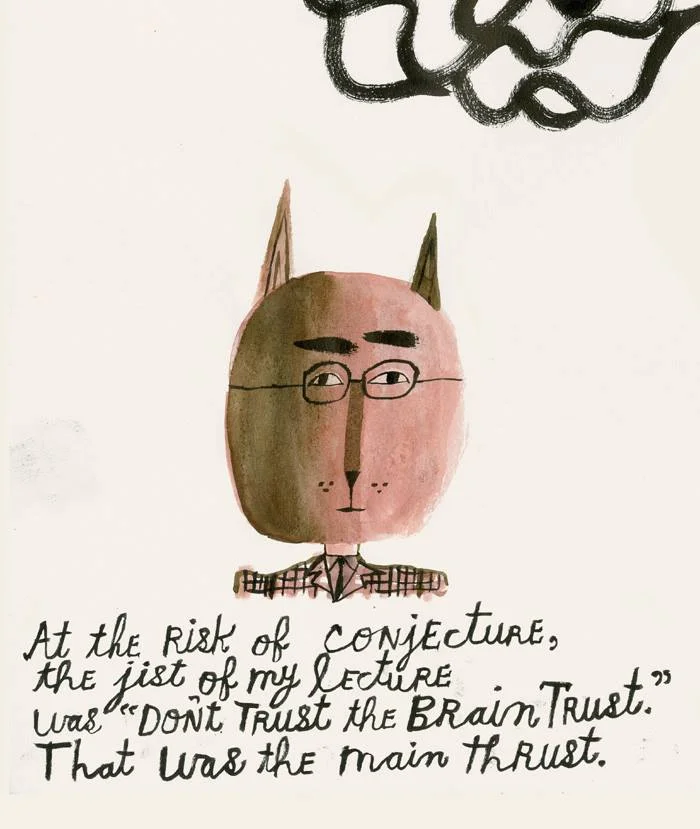 At the Risk of conjecture,
the jist of my lecture
was “Don't Trust the Brain Trust.”
That was the main thrust.